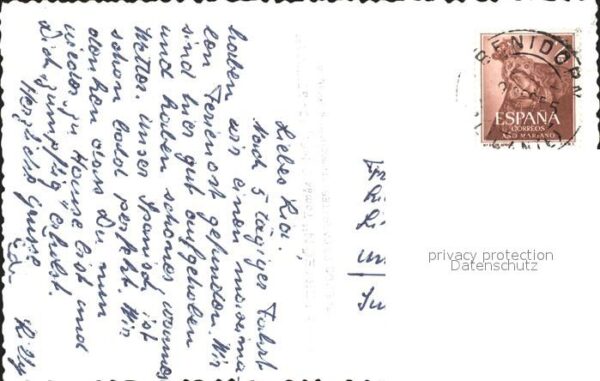 Liebes Rosi,
Nach 5 tägiger Fahrt
haben wir einen
len Ferienort gefunden. Wir
sind hier gut aufgehoben
und haben schönes warmes
Wetter. Unser Spanisch ist
schon bald perfekt. Wir
denken dass Du nun
wieder zu Hause bist und
Dich "erholst.
Herzlich Grüsse
Killy
BENIDORM
ESPAÑA
CORREOS
AÑO MARIANO
privacy protection
Datenschutz